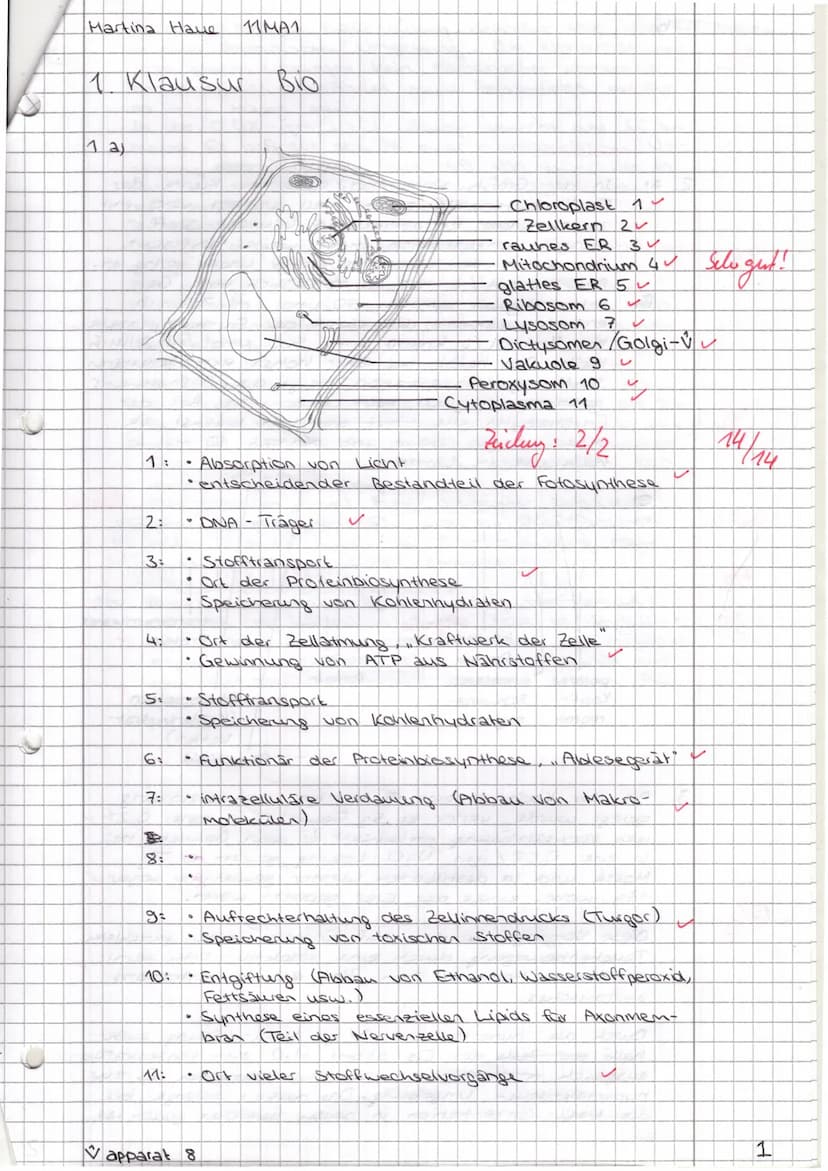 Martina Haue 11MA1
1. Klausur Bio
1 a)
Chloroplast 1 ✓
Zellkern 2 ✓
rauhes ER 3 ✓
Mitochondrium 4 ✓ Sehr gut!
glattes ER 5 ✓
Ribosom 6 ✓
Lysosom 7 ✓
Dictysomen /Golgi- ✓
Vakuole 9 ✓
Peroxysom 10 ✓
Cytoplasma 11 ✓
Zeichnung: 2/2 14/14
1: • Absorption von Licht
• entscheidender Bestandteil der Fotosynthese ✓
2: • DNA - Träger ✓
3: • Stofftransport
• Ort der Proteinbiosynthese ✓
• Speicherung von Kohlenhydraten
4: • Ort der Zellatmung, „Kraftwerk der Zelle"
• Gewinnung von ATP aus Nährstoffen ✓
5: • Stofftransport
• Speicherung von Kohlenhydraten
6: • Funktionär der Proteinbiosynthese, „Ablesegerät" ✓
7: • intrazelluläre Verdauung (Abbau von Makro- ✓
molekülen)
8: •
•
9: • Aufrechterhaltung des Zellinnendrucks (Turgor) ✓
• Speicherung von toxischen Stoffen
10: • Entgiftung (Abbau von Ethanol, Wasserstoffperoxid,
Fettsäuren usw.)
• Synthese eines essenziellen Lipids für Axonmem-
bran (Teil der Nervenzelle)
11: • Ort vieler Stoffwechselvorgänge ✓
apparat 8
1